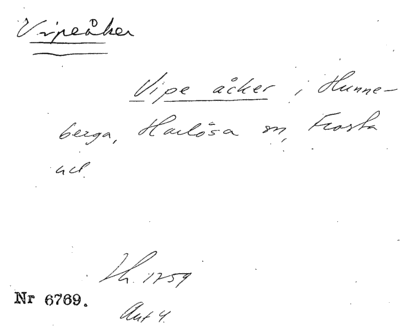 Vipeåker
Vipe åcker i Hunne-
berga, Harlösa sn, Frosta
hd.
Lh. 1759
Nr 6769.
Akt 4.